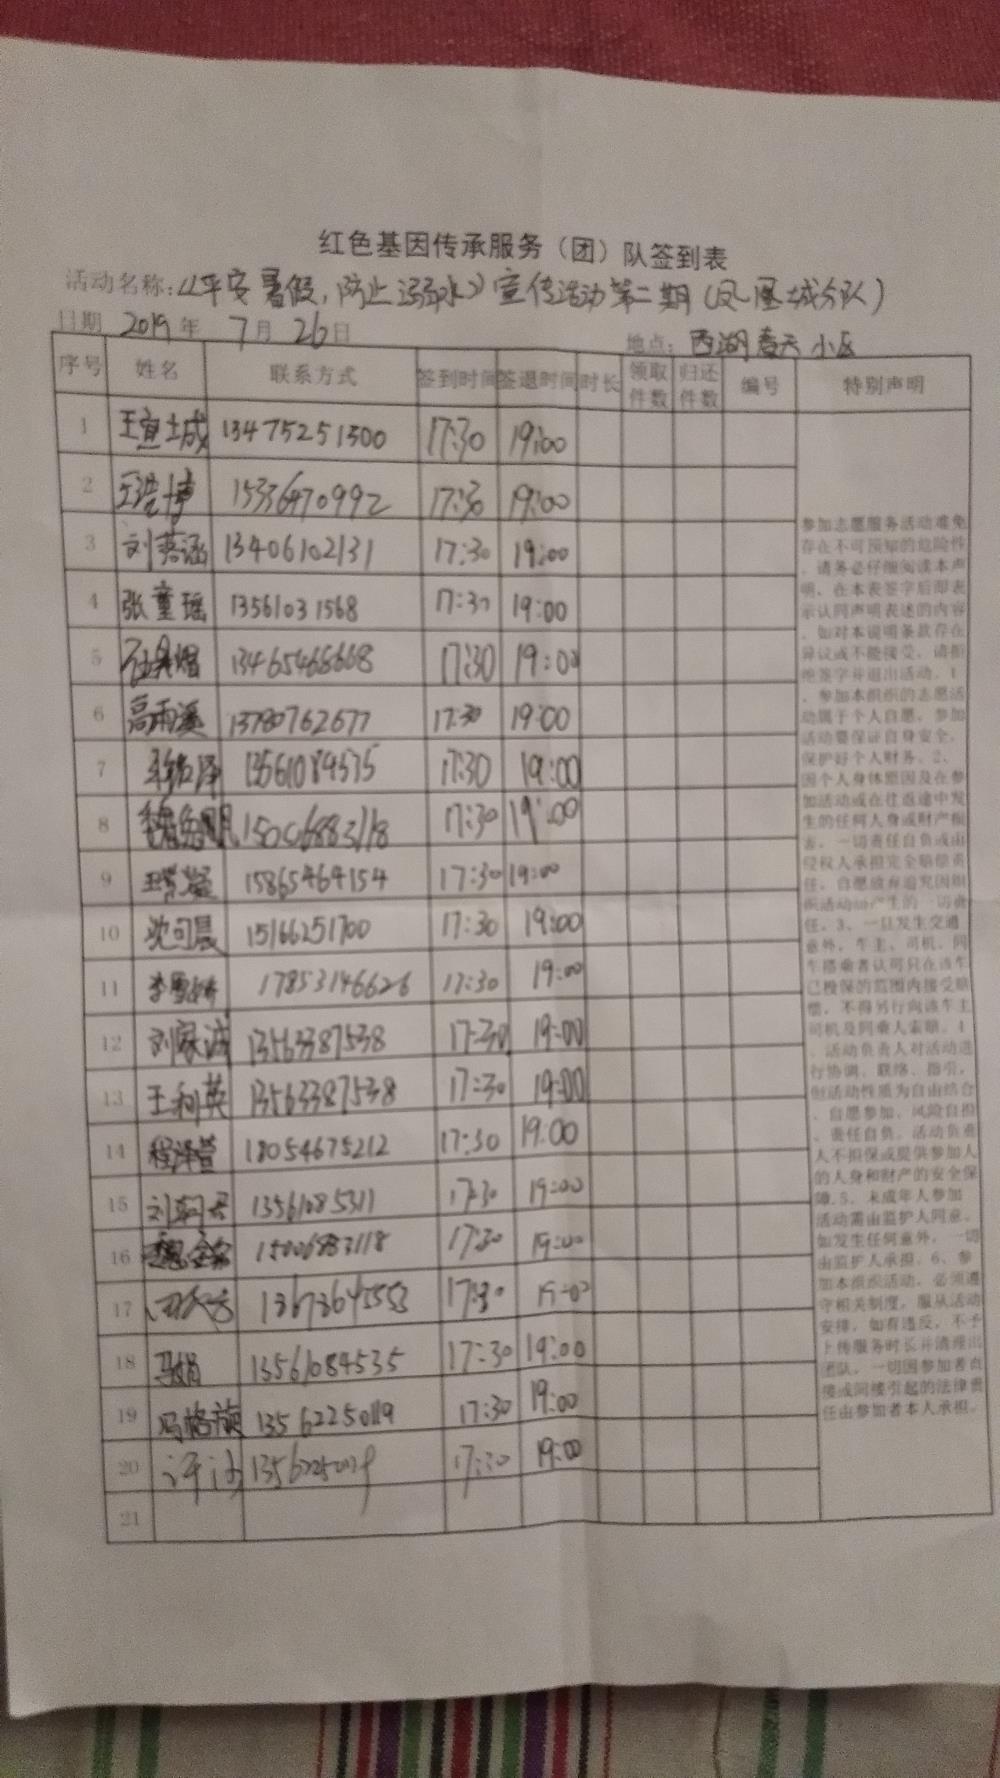 红色基因传承服务（团）队签到表
活动名称：《平安暑假，防止溺水》宣传活动第二期（凤凰城分队）
日期 2019 年 7 月 26 日 地点：西湖春天小区
序号 姓名 联系方式 签到时间 签退时间 时长 领取件数 归还件数 编号 特别声明
1 王宣城 13475251300 17:30 19:00
2 王浩博 15336470992 17:30 19:00
3 刘英涵 13406102131 17:30 19:00
4 张童瑶 13561031568 17:30 19:00
5 13465466668 17:30 19:00
6 高雨溪 13780762677 17:30 19:00
7 13561084535 17:30 19:00
8 15006883118 17:30 19:00
9 15865464154 17:30 19:00
10 沈可晨 15166251700 17:30 19:00
11 17853146626 17:30 19:00
12 刘家诚 13563387538 17:30 19:00
13 王利英 13563387538 17:30 19:00
14 程泽萱 18054675212 17:30 19:00
15 13561085311 17:30 19:00
16 15006883118 17:30 19:00
17 17:30 19:00
18 马娟 13561084535 17:30 19:00
19 冯格旗 13562250119 17:30 19:00
20 17:30 19:00
21
参加志愿服务活动难免
存在不可预知的危险性
，请务必仔细阅读本声
明，在本表签字后即表
示认同声明表述的内容
，如对本说明条款存在
异议或不能接受，请拒
绝签字并退出活动。1
、参加本组织的志愿活
动属于个人自愿，参加
活动要保证自身安全，
保护好个人财务。2、
因个人身体原因及在参
加活动或在往返途中发
生的任何人身或财产损
害，一切责任自负或由
侵权人承担完全赔偿责
任，自愿放弃追究因组
织活动而产生的一切责
任。3、一旦发生交通
意外，车主、司机、同
车搭乘者认可只在该车
已投保的范围内接受赔
偿，不得另行向该车主
司机及同乘人索赔。4
、活动负责人对活动进
行协调、联络、指引，
但活动性质为自由结合
、自愿参加、风险自担
、责任自负。活动负责
人不担保或提供参加人
的人身和财产的安全保
障。5、未成年人参加
活动需由监护人同意，
如发生任何意外，一切
由监护人承担。6、参
加本组织活动，必须遵
守相关制度，服从活动
安排，如有违反，不予
上传服务时长并清理出
团队。一切因参加者直
接或间接引起的法律责
任由参加者本人承担。